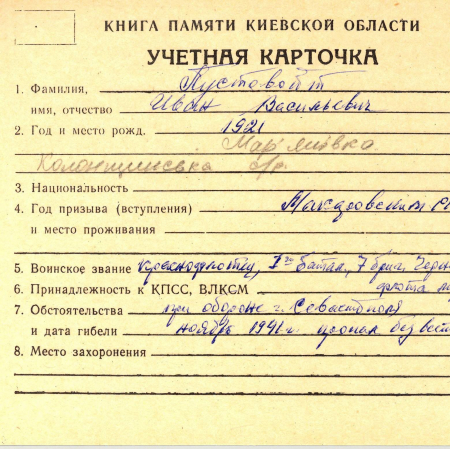 КНИГА ПАМЯТИ КИЕВСКОЙ ОБЛАСТИ
УЧЕТНАЯ КАРТОЧКА
1. Фамилия, Пустовойт
имя, отчество Иван Васильевич
2. Год и место рожд. 1921
Мар'янівка
Колонщинська с/р.
3. Национальность
4. Год призыва (вступления) Макаровским
и место проживания
5. Воинское звание краснофлотец, 1го батал, 7 бриг. Черн
6. Принадлежность к КПСС, ВЛКСМ флота
7. Обстоятельства при обороне г. Севастополя
и дата гибели ноябрь 1941 г. пропал без вест
8. Место захоронения